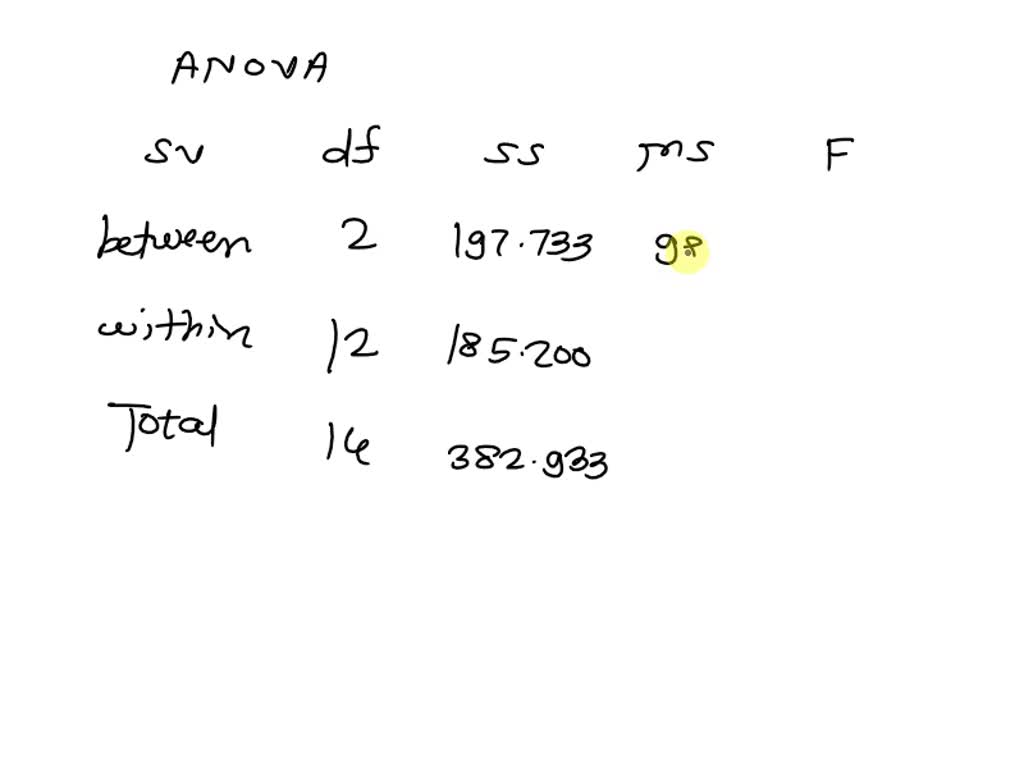 ANOVA
SV df SS MS F
between 2 197.733 98
within 12 185.200
Total 14 382.933